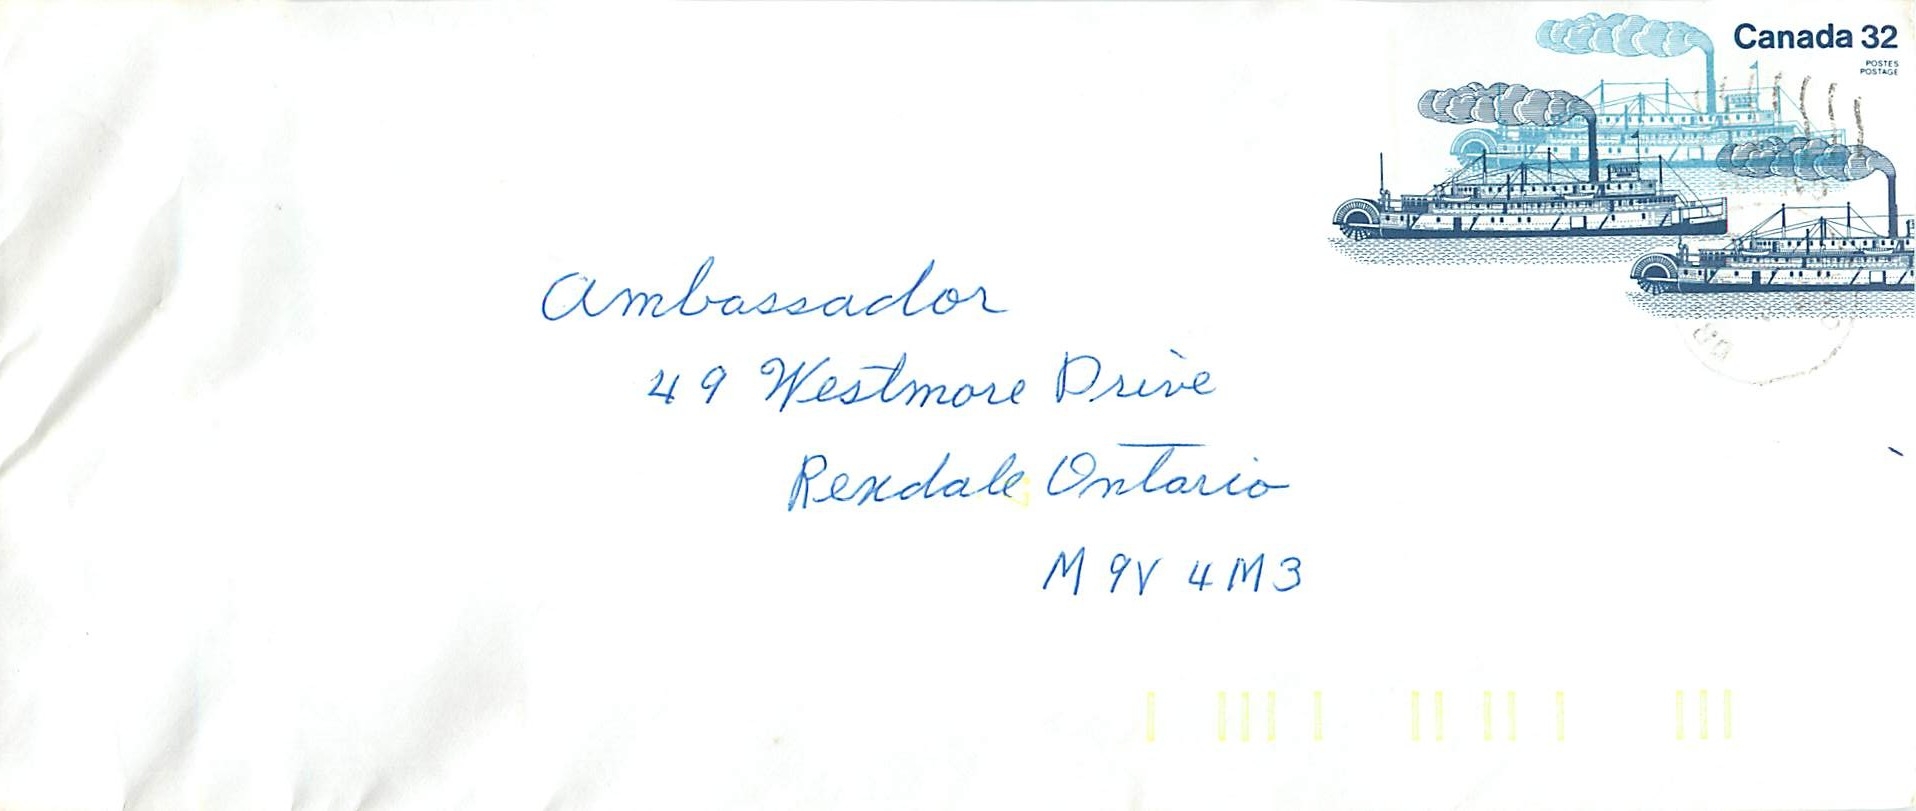 Canada 32
POSTES
POSTAGE
Ambassador
49 Westmore Drive
Rexdale Ontario
M9V 4M3